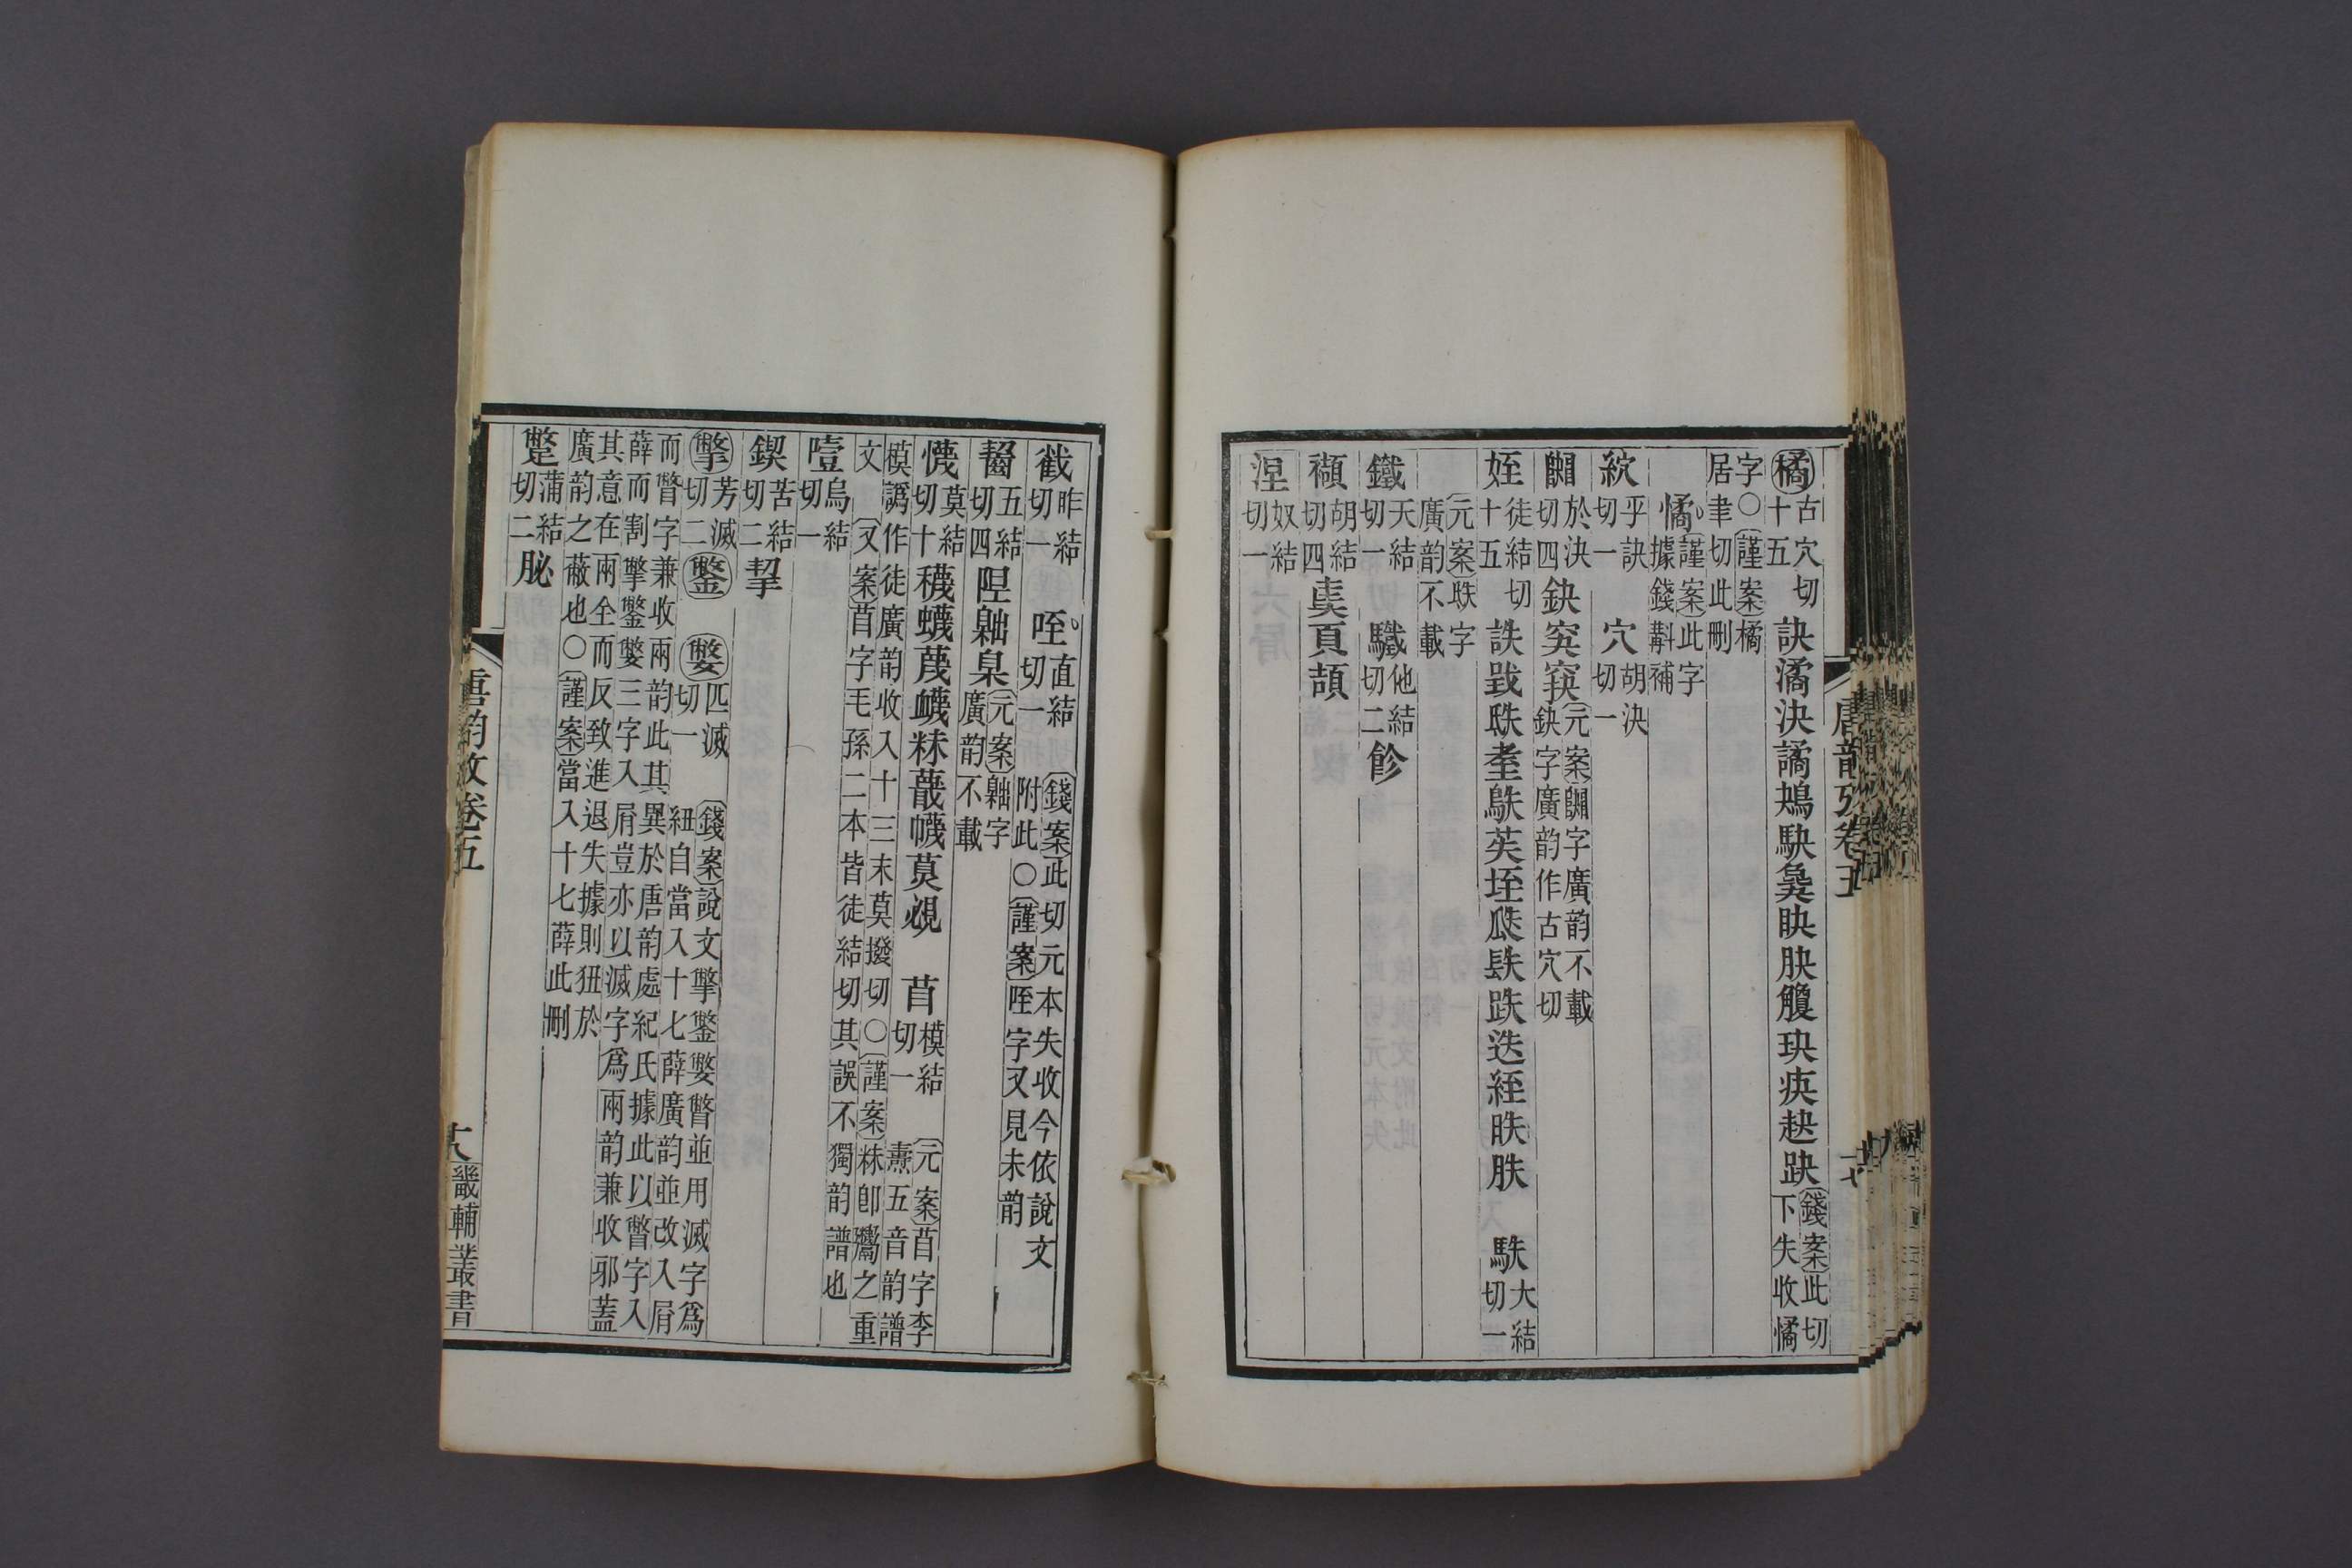 橘古穴切十五訣潏決譎鴂駃𡙇眣肤觼玦疾趹跌〔錢案〕此切下失收憰
字〇〔謹案〕橘居聿切此刪
憰〔謹案〕此字據錢斠補
紇乎訣切一 穴胡決切一
䦯於決切四鈌突窫〔元案〕䦯字廣韵不載鈌字廣韵作古穴切
姪徒結切十五詄戜昳耊鴃苵垤瓞镻跌迭絰眣胅 駃大結切一
〔元案〕昳字廣韵不載
鐵天結切一 驖他結切二飻
襭胡結切四奊頁頡
涅奴結切一
唐韵攷卷五
十七
截昨結切一 咥直結切一〔錢案〕此切元本失收今依說文附此〇〔謹案〕咥字又見未韵
齧五結切四隉臲臬〔元案〕臲字廣韵不載
懱莫結切十穖蠛蔑衊䊳𥽘幭莫覕 苜模結切一〔元案〕苜字李燾五音韵譜
模譌作徒廣韵收入十三末莫撥切〇〔謹案〕䊳卽鬻之重
文〔又案〕苜字毛孫二本皆徒結切其誤不獨韵譜也
噎烏結切一
鍥苦結切二挈
擎芳滅切二鐅 嫳匹滅切一〔錢案〕說文擎鐅嫳瞥並用滅字爲紐自當入十七薛廣韵並改入屑
而瞥字兼收兩韵此其異於唐韵處紀氏據此以瞥字入
薛而割擎鐅嫳三字入屑豈亦以滅字爲兩韵兼收邪蓋
其意在兩全而反致進退失據則狃於
廣韵之蔽也〇〔謹案〕當入十七薛此刪
蹩蒲結切二䏟
唐韵攷卷五
十八
畿輔叢書